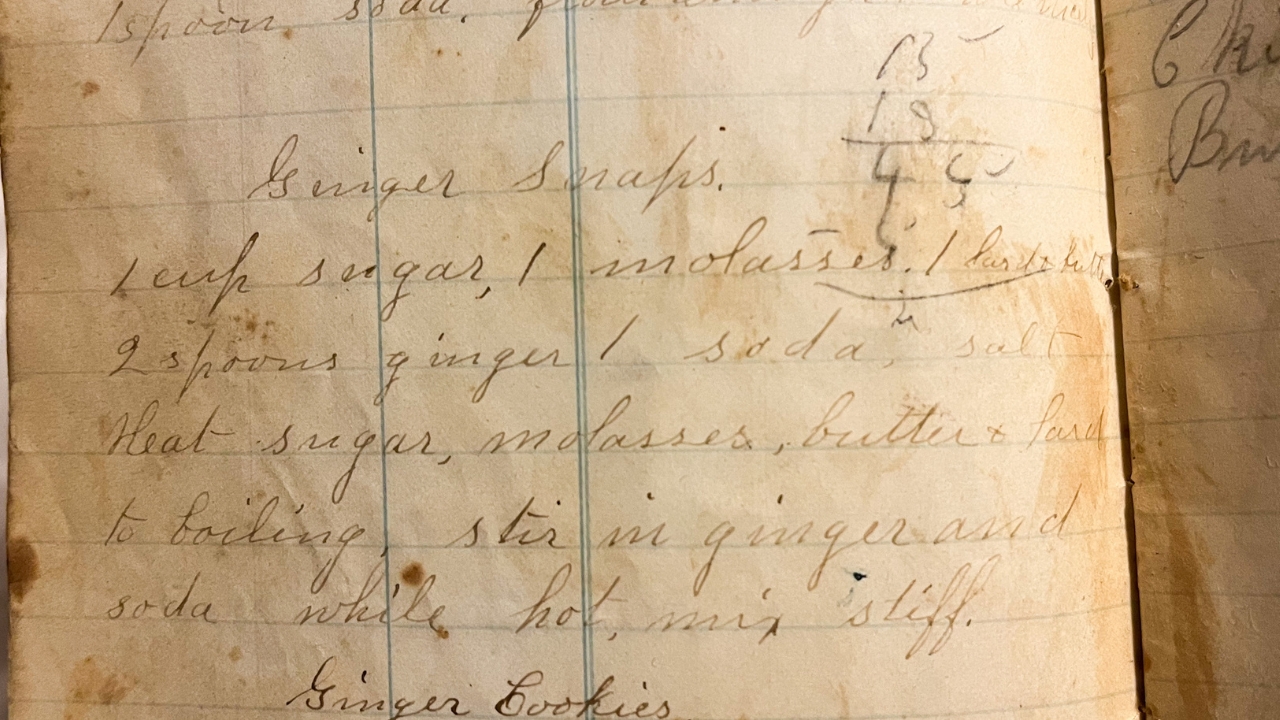 1 spoon soda, flour
Ginger Snaps.
1 cup sugar, 1 molasses. 1 lard & butter
2 spoons ginger 1 soda, salt
Heat sugar, molasses, butter & lard
to boiling, stir in ginger and
soda while hot, mix stiff.
Ginger Cookies
13
18
45